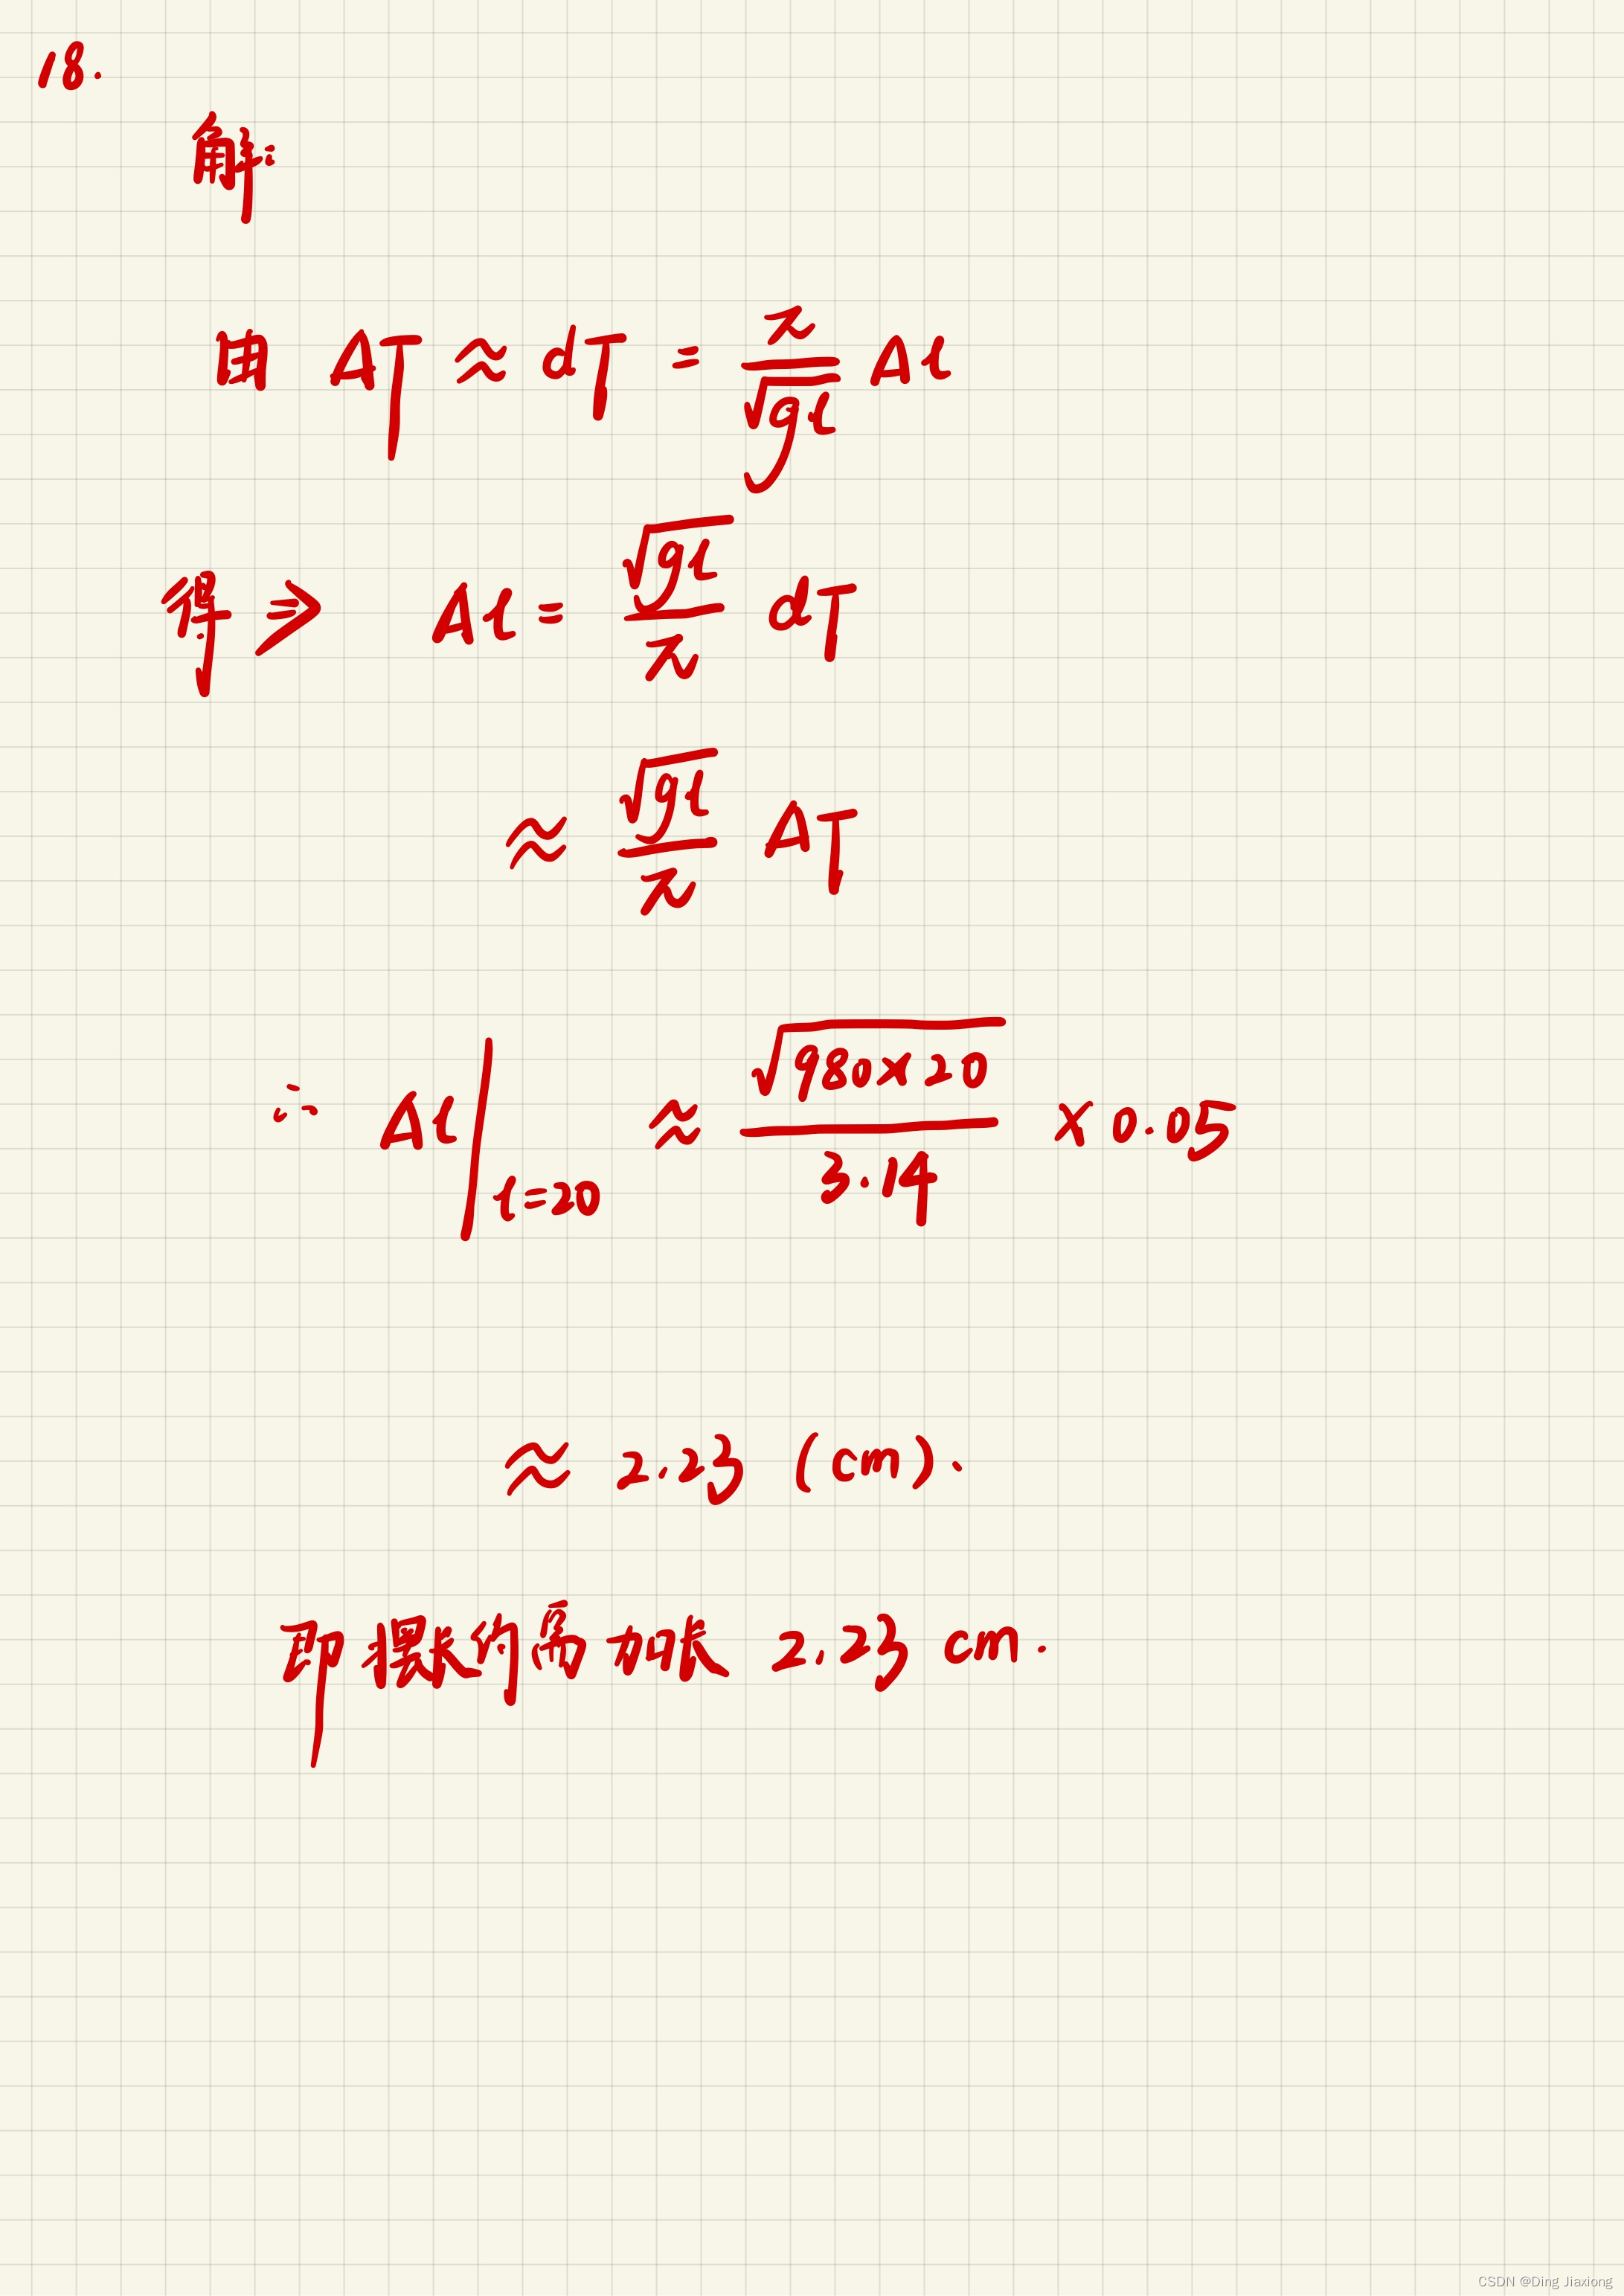 18.
解:
由 ΔT ≈ dT = π/√(gl) Δl
得 ⇒ Δl = √(gl)/π dT
≈ √(gl)/π ΔT
∴ Δl|l=20 ≈ √(980×20)/3.14 × 0.05
≈ 2.23 (cm).
即摆长约需加长 2.23 cm.
CSDN @Ding Jiaxiong